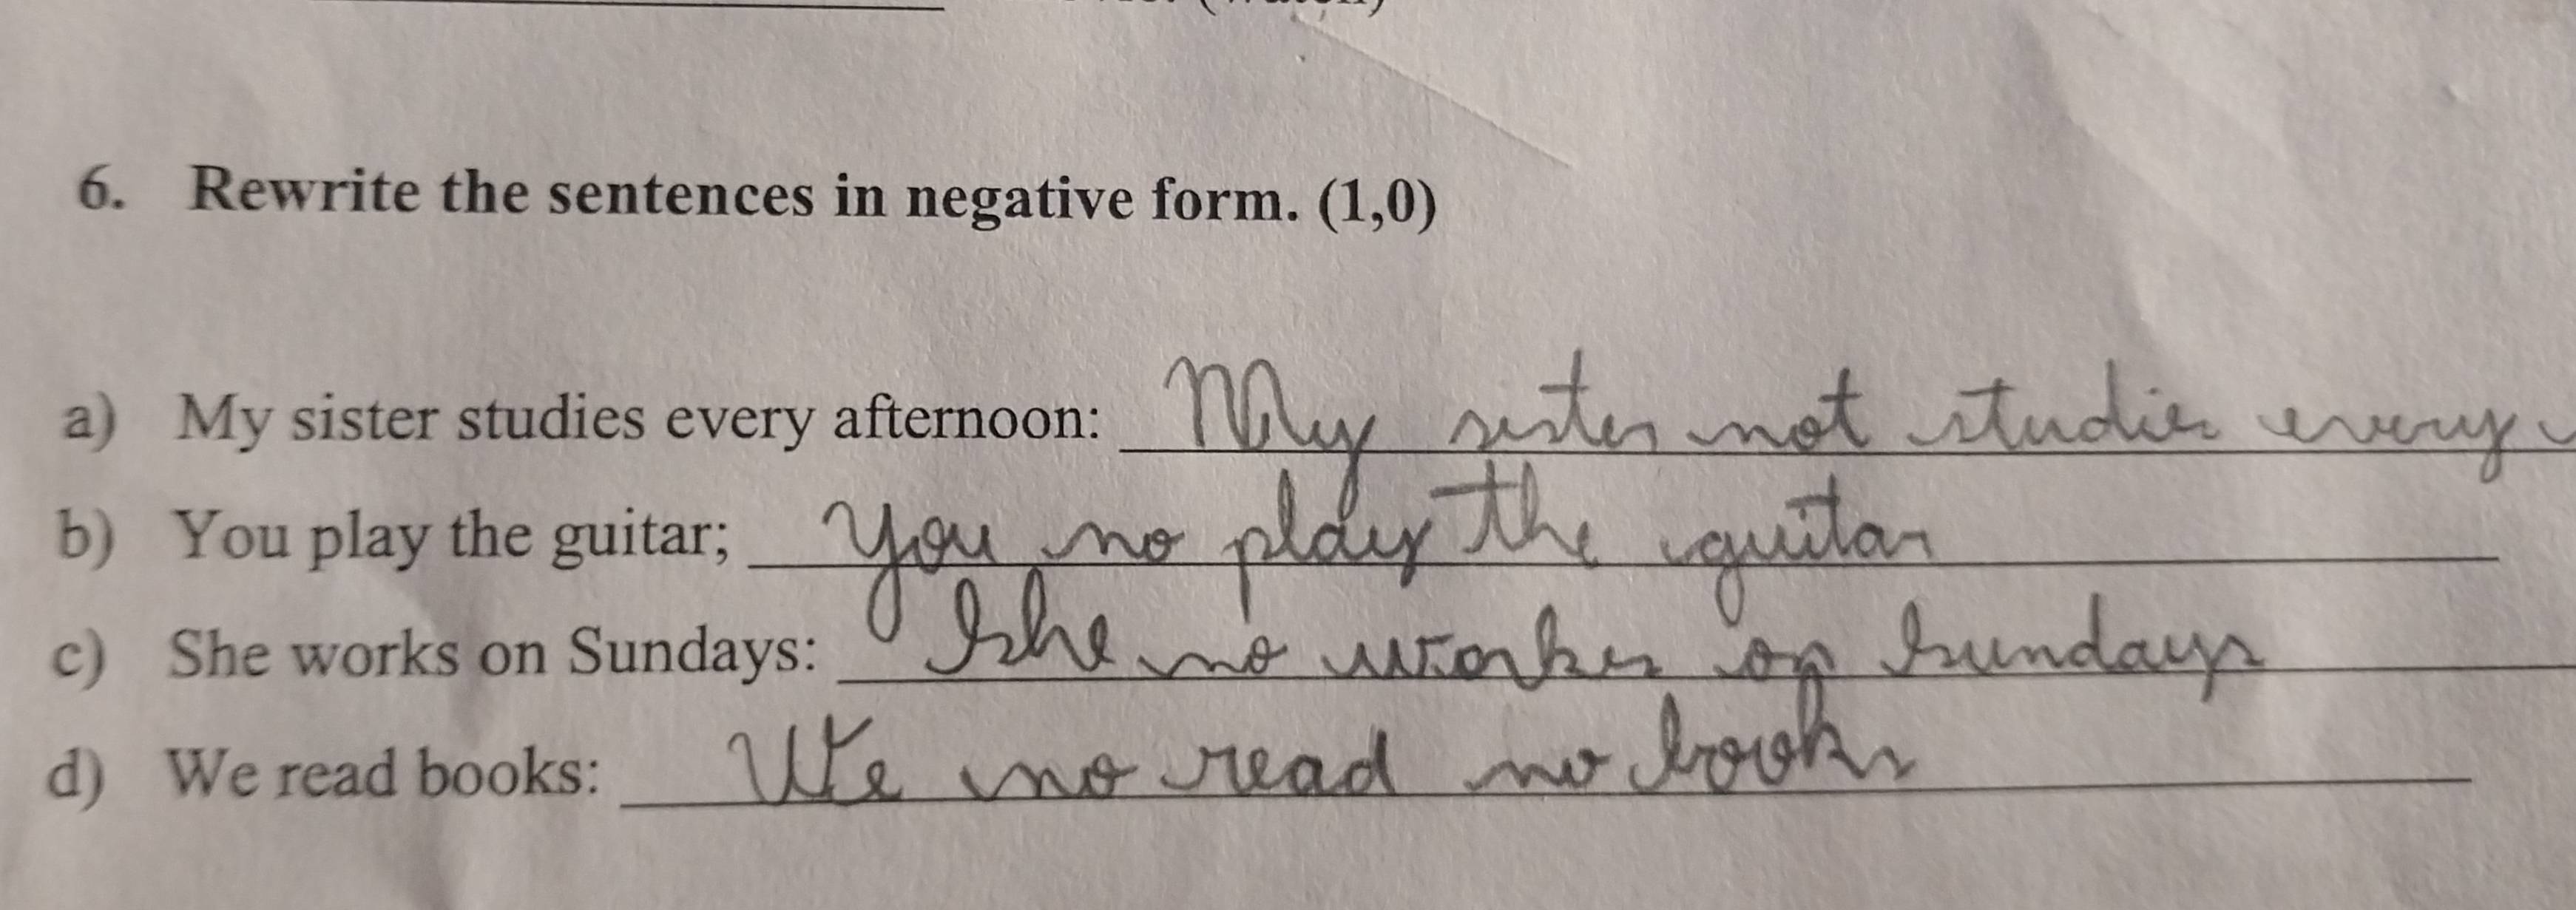 (watch)
6. Rewrite the sentences in negative form. (1,0)
a) My sister studies every afternoon: My sister not studies every
b) You play the guitar; You no play the guitar
c) She works on Sundays: She no workes on Sundays
d) We read books: We no read no books